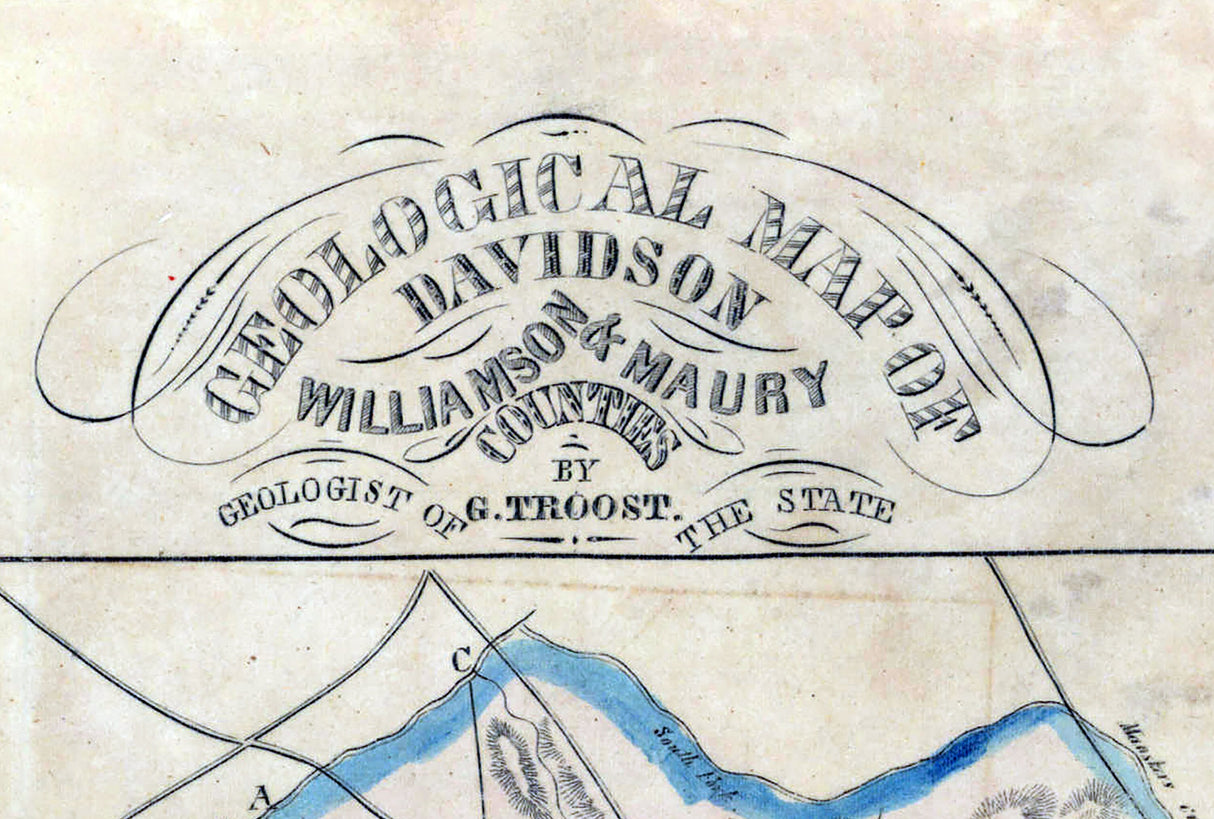 GEOLOGICAL MAP OF
DAVIDSON
WILLIAMSON & MAURY
COUNTIES
BY
G. TROOST.
GEOLOGIST OF THE STATE
C
A
South Fork
Manskers